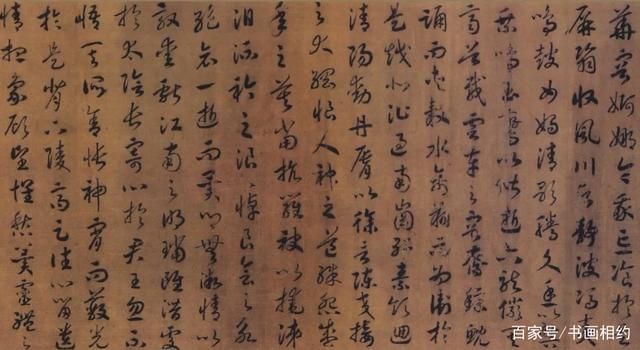 華容婀娜令我忘飡於
屏翳收風川后靜波馮夷
鳴鼓女媧清歌騰文魚以
乘鳴玉鸞以偕逝六龍儼其
齊首載雲車之容裔鯨鯢
踊而夾轂水禽翔而為衛於
是越北沚過南崗紆素領迴
清陽動丹脣以徐言陳交接
之大綱恨人神之道殊怨盛
年之莫當抗羅袂以掩涕
淚流衿之浪浪悼良會之永
絕哀一逝而異鄉無微情以
效愛獻江南之明璫雖潛處
於太陰長寄心於君王忽不
悟其所舍悵神宵而蔽光
於是背下陵高足往心留遺
情想象顧望懷愁冀靈體之
百家号/书画相约